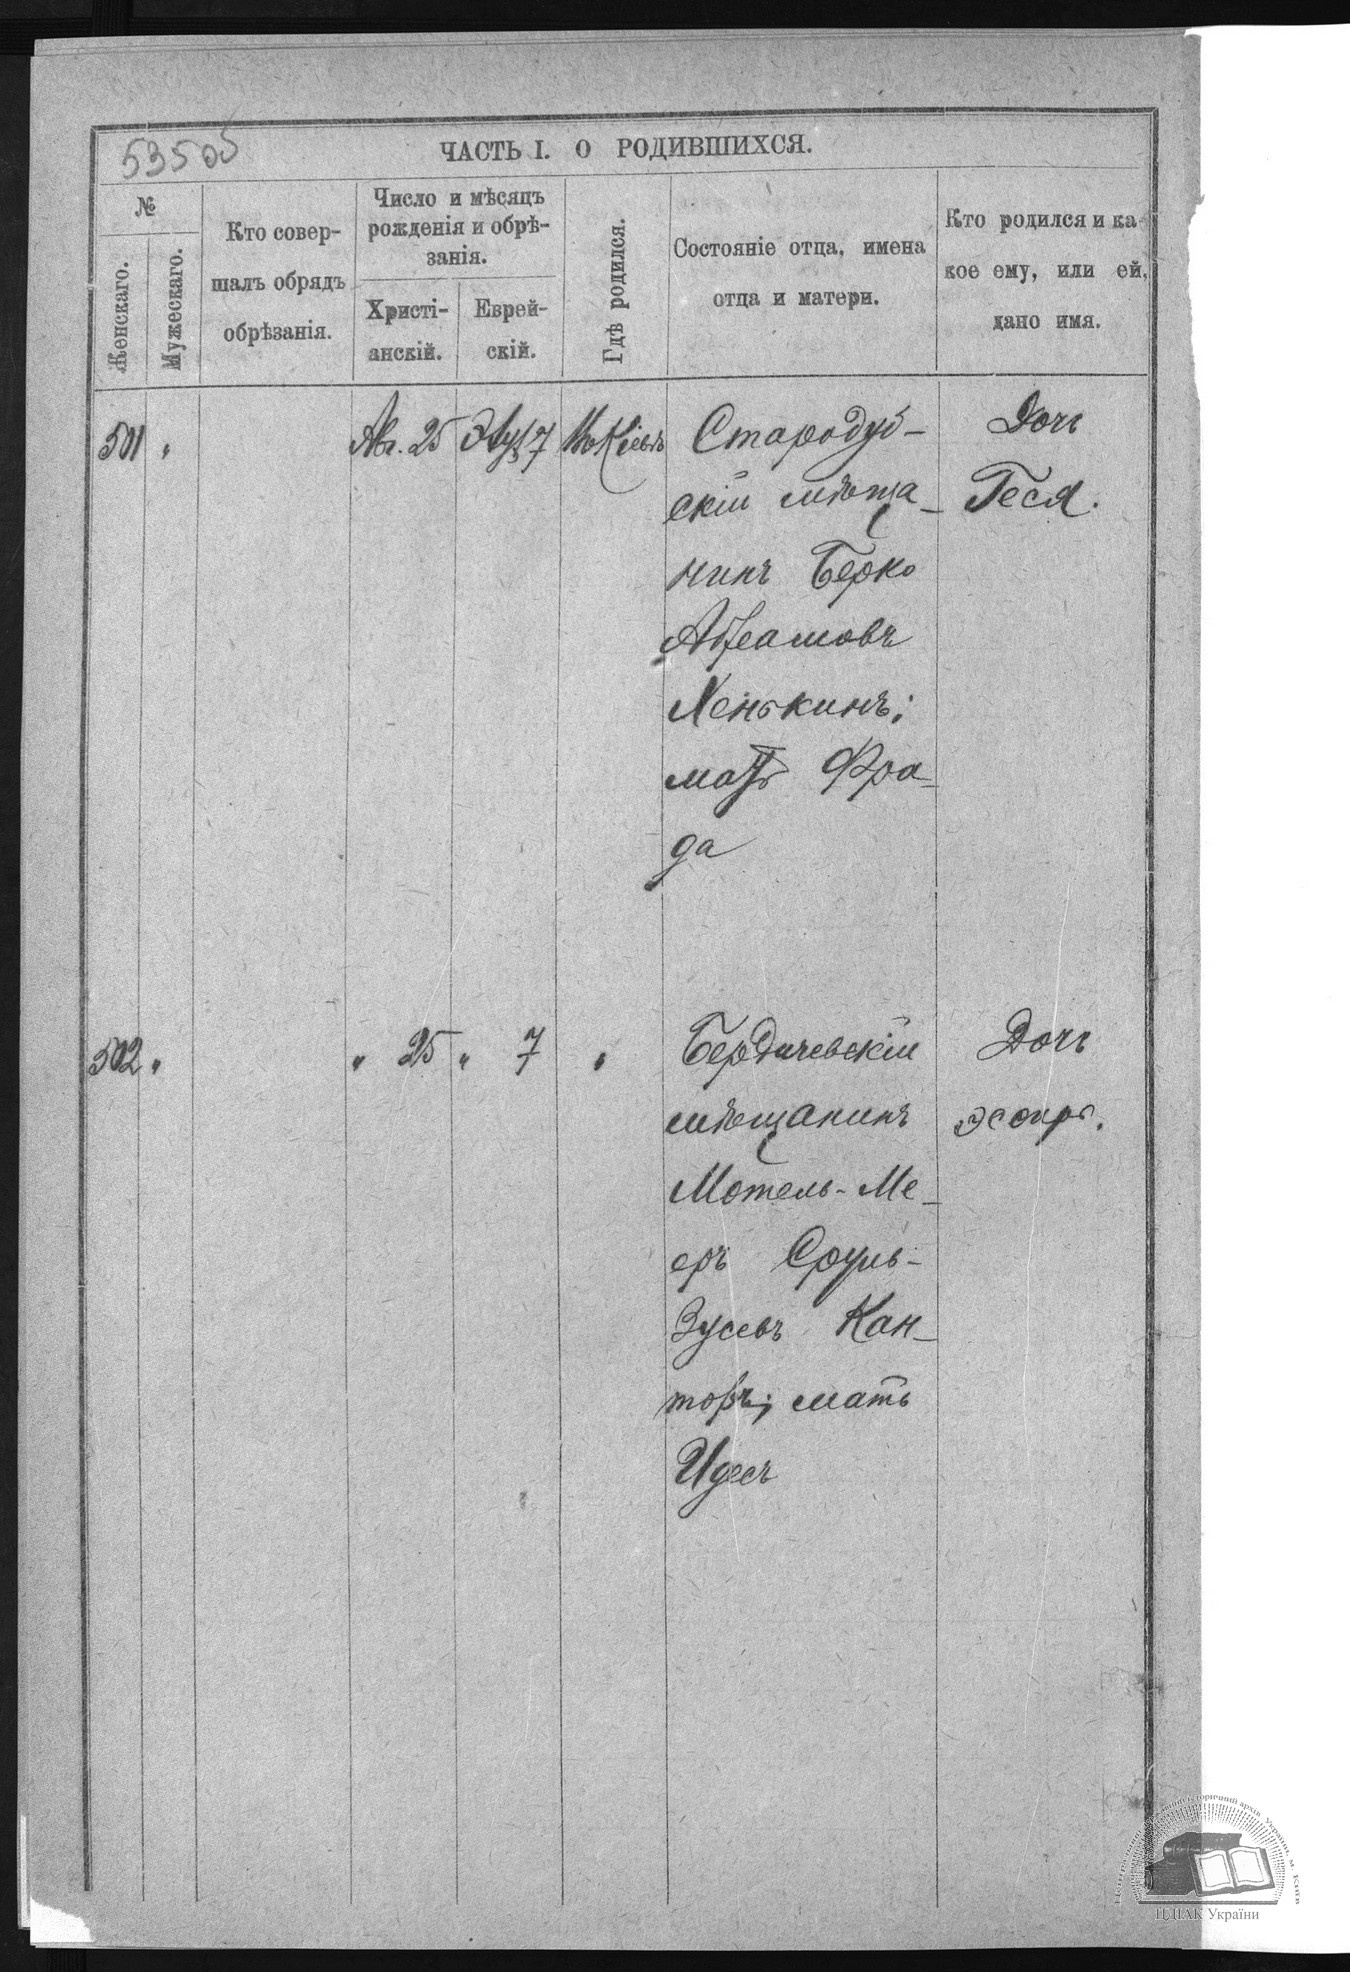 53505
ЧАСТЬ I. О РОДИВШИХСЯ.
№
Женскаго.
Мужескаго.
Кто совер-
шалъ обрядъ
обрѣзанія.
Число и мѣсяцъ
рожденія и обрѣ-
занія.
Христі-
анскій.
Еврей-
скій.
Гдѣ родился.
Состояніе отца, имена
отца и матери.
Кто родился и ка-
кое ему, или ей,
дано имя.
501 " Авг. 25 Элул 7 Въ Кіевѣ Стародуб- Дочь
скій мѣща- Геся.
нинъ Берко
Абрамовъ
Хенькинъ;
мать Фра-
да
502 " " 25 " 7 " Бердичевскій Дочь
мѣщанинъ Эсѳирь.
Мотель-Ме-
еръ Сруль-
Зусевъ Кан-
торъ; мать
Идесъ
ЦДІАК України